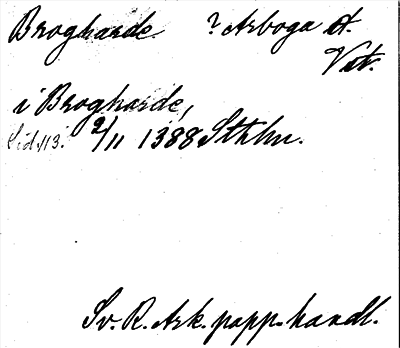 Brogharde ? Arboga st.
Vst.
i Brogharde,
Sid 113. 2/11 1388 Sthlm.
Sv. R. Ark. papp. handl.